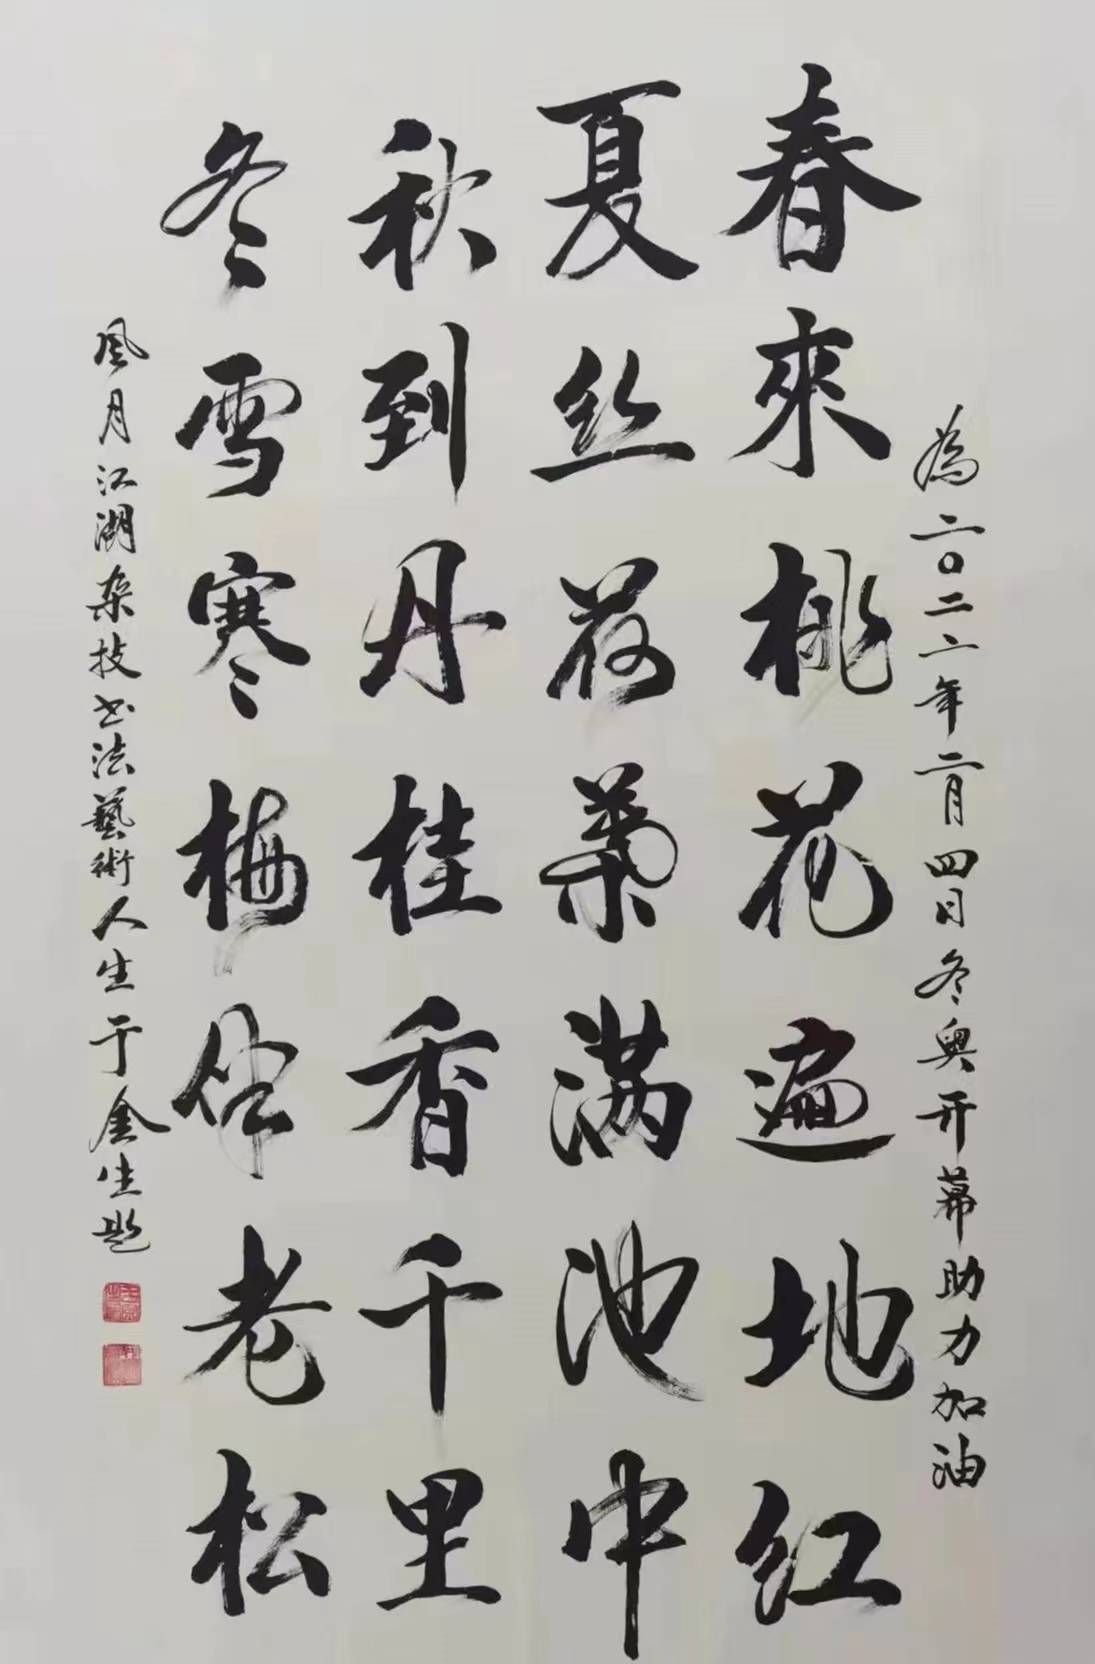 為二〇二二年二月四日冬奥开幕助力加油
春來桃花遍地红
夏丝荷葉满池中
秋到丹桂香千里
冬雪寒梅伴老松
風月江湖杂技书法藝術人生于金生题